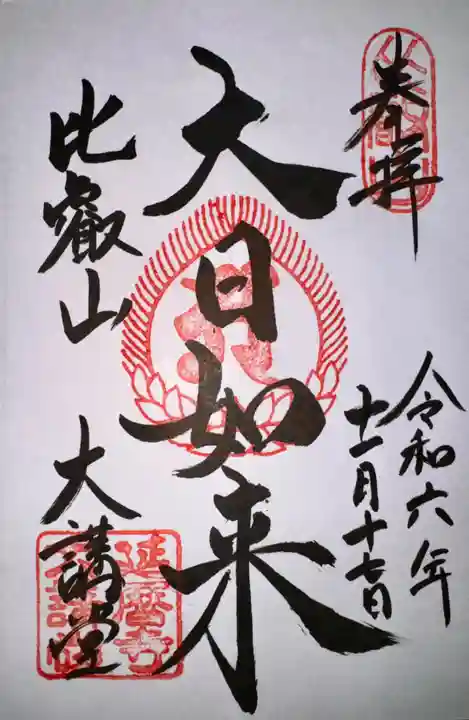 奉拝
令和六年
十一月十七日
大日如来
比叡山
大講堂
比叡山
延暦寺